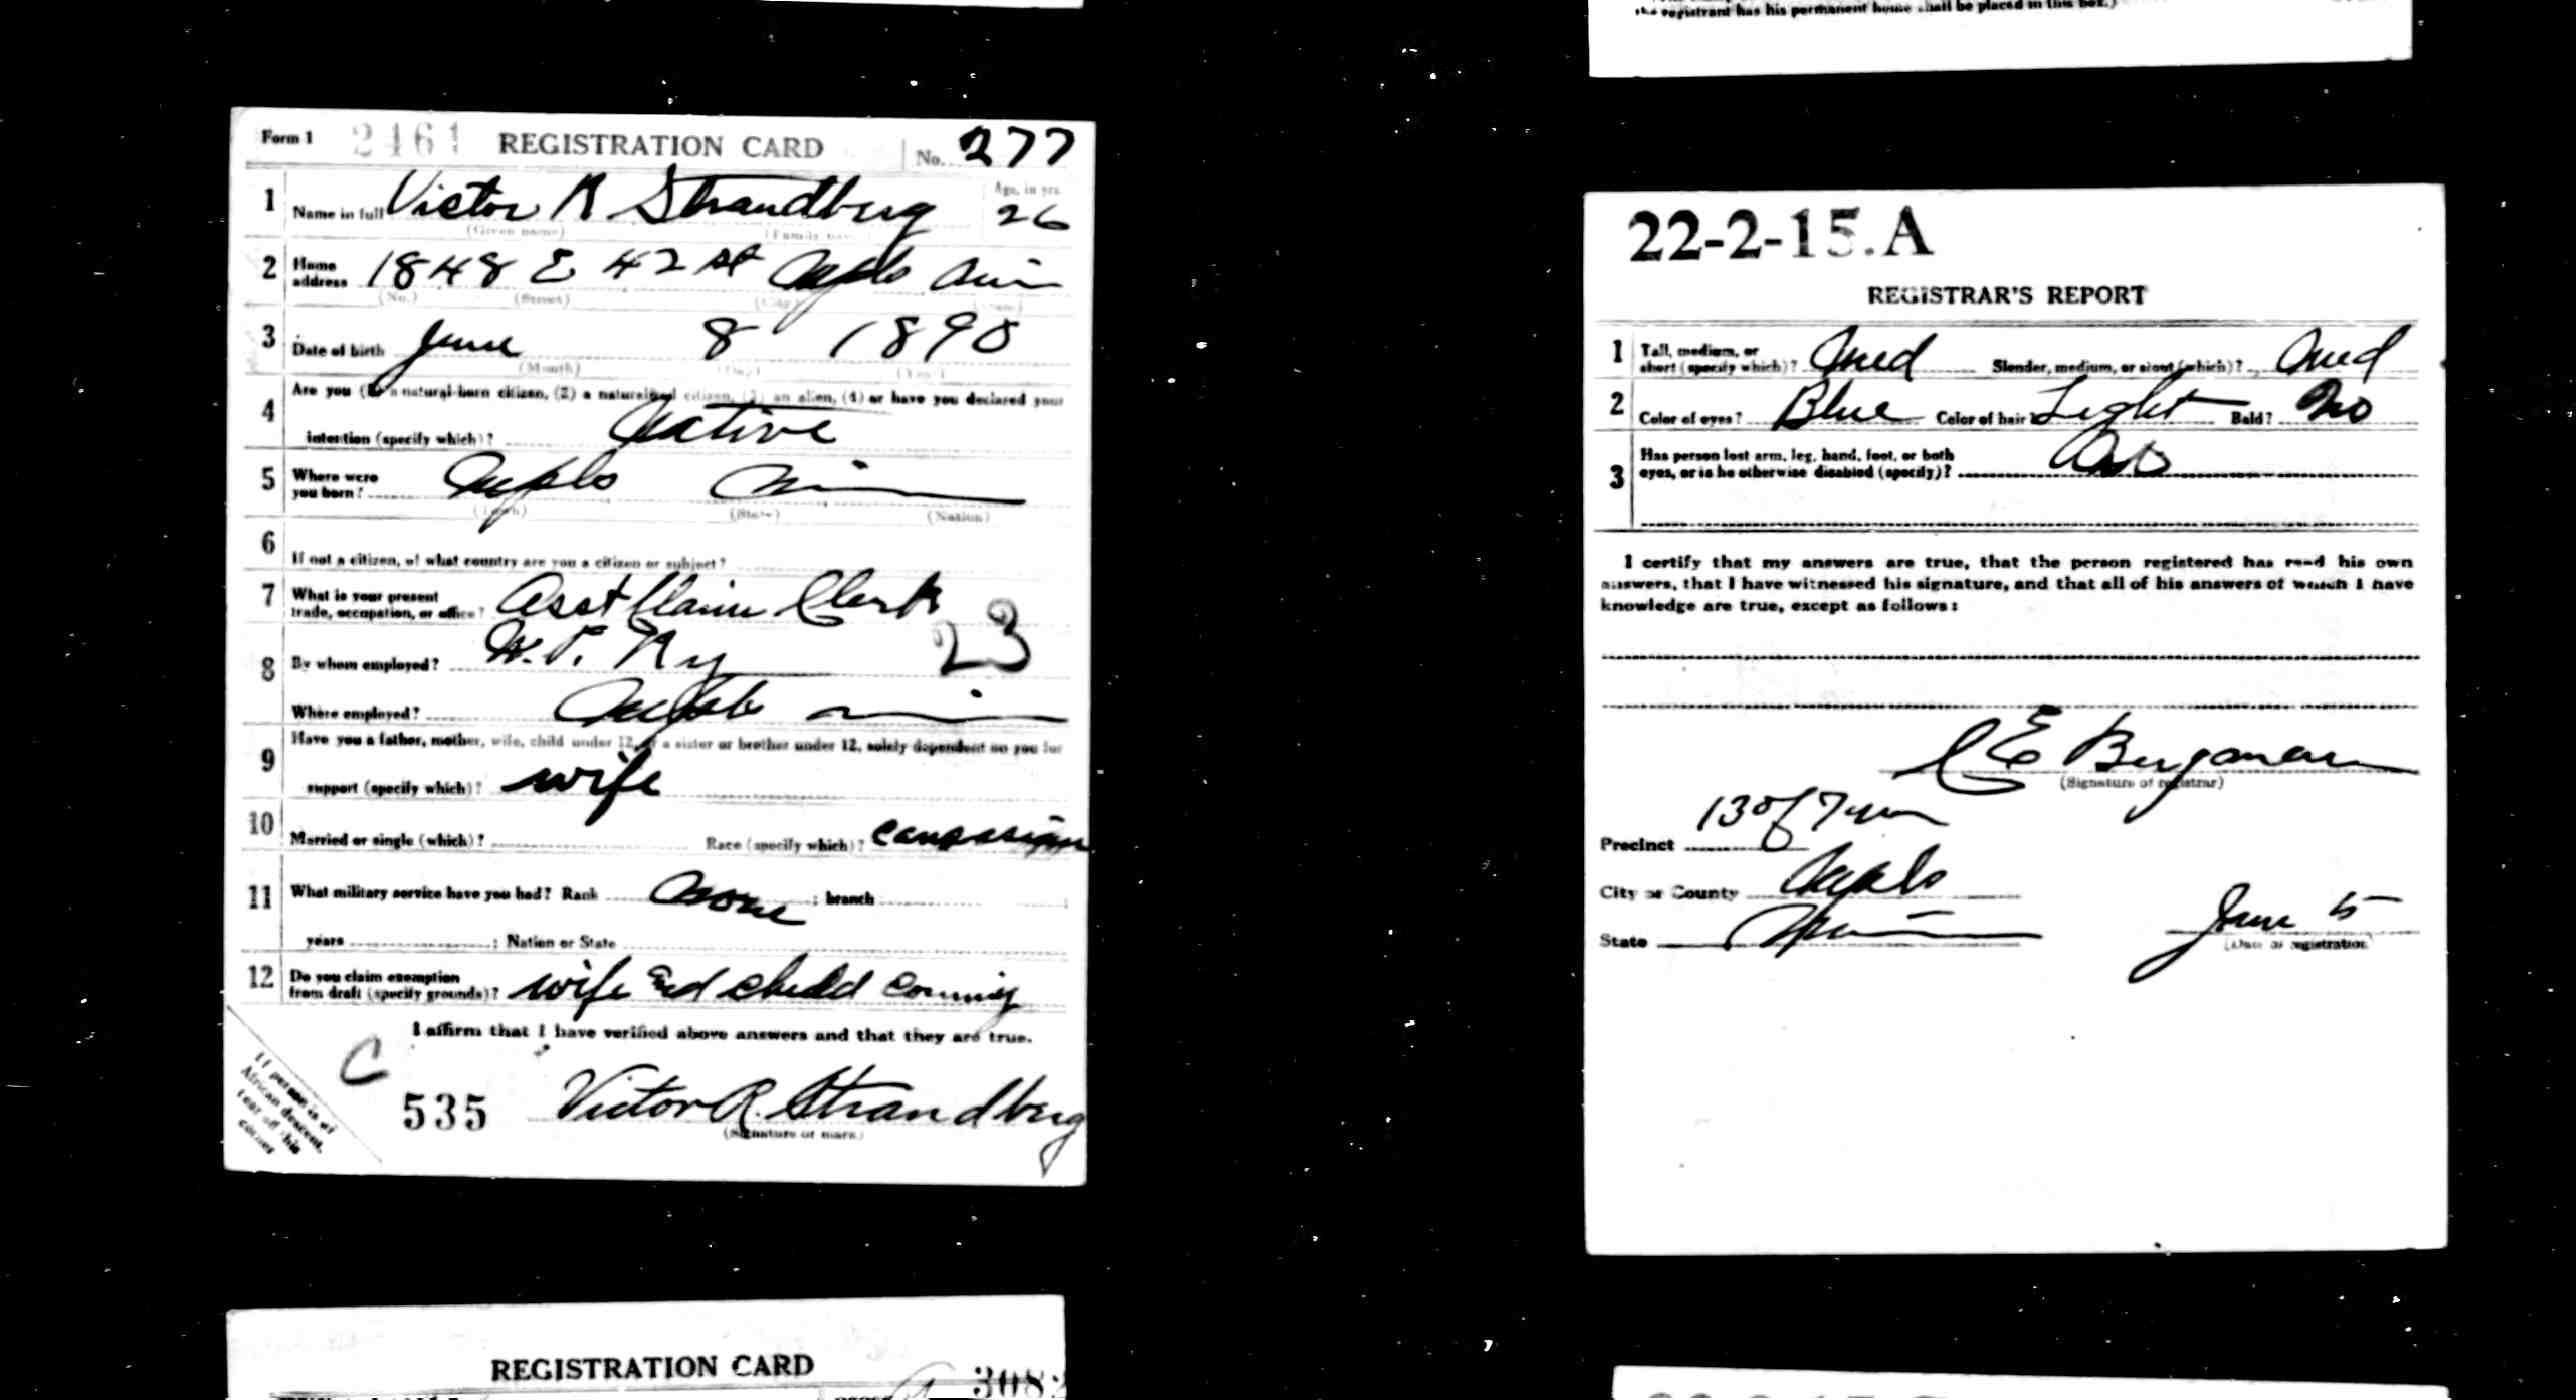 the registrant has his permanent home shall be placed in this box.)
Form 1 2461 REGISTRATION CARD No. 277
1 Name in full Victor R Strandberg Age, in yrs. 26
(Given name) (Family name)
2 Home address 1848 E 42 St Mpls Min
(No.) (Street) (City) (State)
3 Date of birth June 8 1890
(Month) (Day) (Year)
4 Are you (1) a natural-born citizen, (2) a naturalized citizen, (3) an alien, (4) or have you declared your
intention (specify which)? Native
5 Where were you born? Mpls Min
(Town) (State) (Nation)
6 If not a citizen, of what country are you a citizen or subject?
7 What is your present trade, occupation, or office? Asst Claim Clerk
23
8 By whom employed? N.P. Ry
Where employed? Mpls Min
9 Have you a father, mother, wife, child under 12, or a sister or brother under 12, solely dependent on you for
support (specify which)? wife
10 Married or single (which)? Race (specify which)? Caucasian
11 What military service have you had? Rank None ; branch
years ; Nation or State
12 Do you claim exemption from draft (specify grounds)? wife and child coming
I affirm that I have verified above answers and that they are true.
C
535 Victor R. Strandberg
(Signature or mark)
If person is of
African descent,
tear off this
corner
REGISTRATION CARD
22-2-15.A
REGISTRAR'S REPORT
1 Tall, medium, or short (specify which)? Med Slender, medium, or stout (which)? Med
2 Color of eyes? Blue Color of hair? Light Bald? No
3 Has person lost arm, leg, hand, foot, or both
eyes, or is he otherwise disabled (specify)? No
I certify that my answers are true, that the person registered has read his own
answers, that I have witnessed his signature, and that all of his answers of which I have
knowledge are true, except as follows:
C E Bergman
(Signature of registrar)
Precinct 13 of 7
City or County Mpls
State Min June 5
(Date of registration)